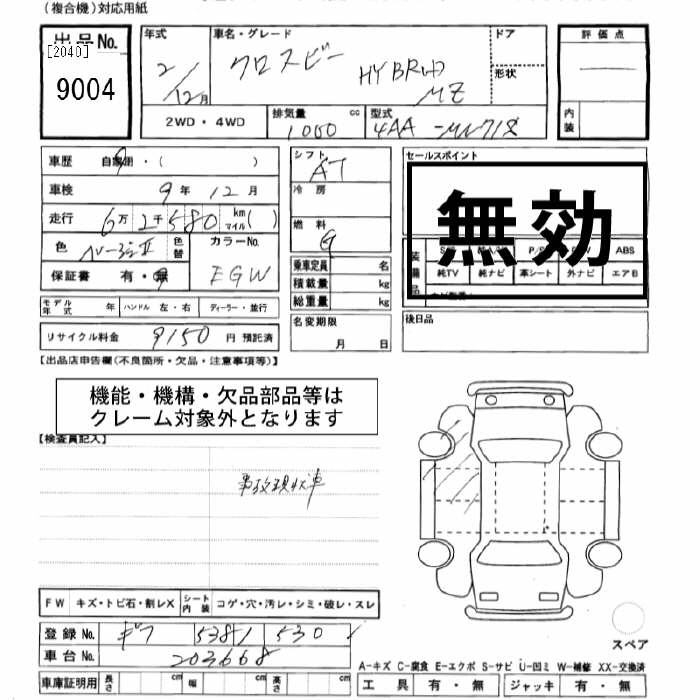 (複合機)対応用紙
出品No. 年式 車名・グレード ドア 評価点
[2040]
9004
2/12月 クロスビー HYBRID MZ 形状
2WD・4WD 排気量 cc 型式 内装
1000 4AA-MN71S
車歴 自家用・( ) シフト AT セールスポイント
車検 9年12月 冷房
無効
走行 6万2千580 km マイル( ) 燃料 G
色 パールII 色替 カラーNo. ABS
保証書 有・無 EGW 乗車定員 名 純TV 純ナビ 革シート 外ナビ エアB
積載量 kg
総重量 kg
モデル年式 年 ハンドル 左・右 ディーラー・並行 名変期限 後日品
リサイクル料金 9150 円 預託済 月 日
【出品店申告欄(不良箇所・欠品・注意事項等)】
機能・機構・欠品部品等は
クレーム対象外となります
【検査員記入】
事故現状車
FW キズ・トビ石・割レX シート内装 コゲ・穴・汚レ・シミ・破レ・スレ
登録No. ギフ 538 530
スペア
車台No. 203668
A-キズ C-腐食 E-エクボ S-サビ U-凹ミ W-補修 XX-交換済
車庫証明用 長さ cm 幅 cm 高さ cm 工具 有・無 ジャッキ 有・無